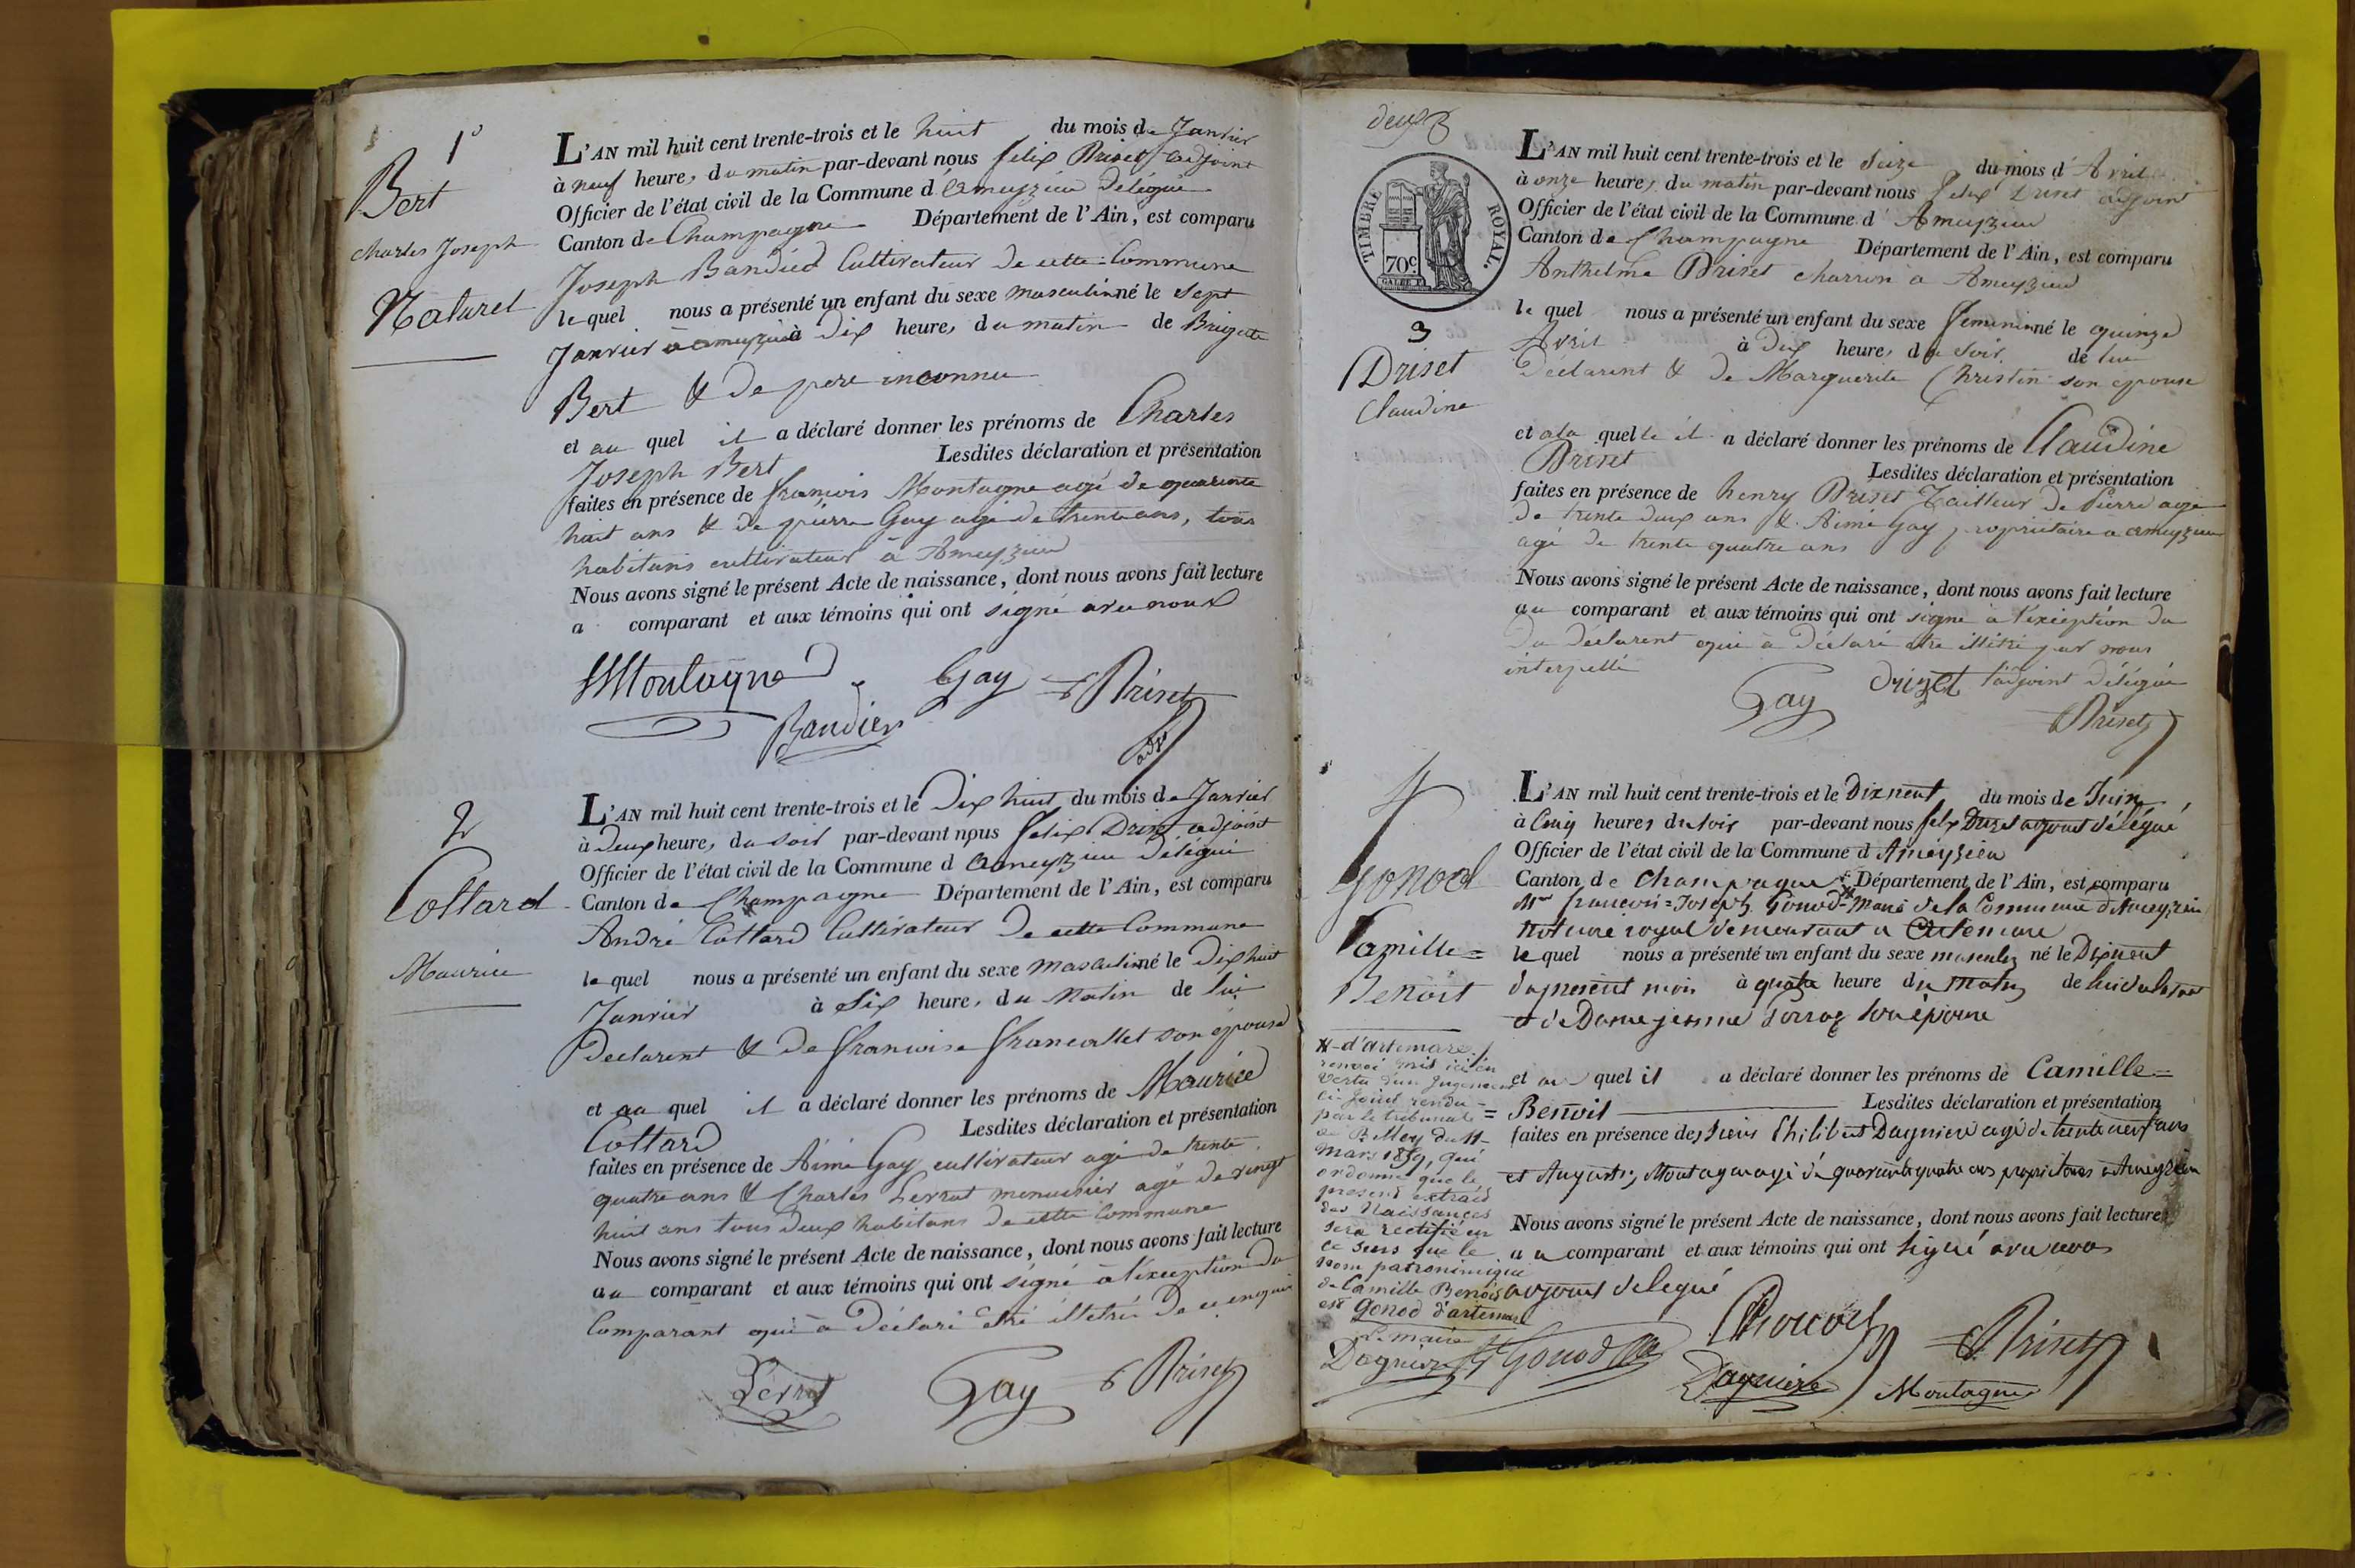 1°
Bert
Charles Joseph
Naturel
L'AN mil huit cent trente-trois et le huit du mois de Janvier
à neuf heures du matin par-devant nous felix Driset adjoint
Officier de l'état civil de la Commune d'ameyzieu délégué
Canton de Champagne Département de l'Ain, est comparu
Joseph Bandied Cultivateur de cette Commune
lequel nous a présenté un enfant du sexe masculin né le Sept
Janvier à ameyzieu à dix heures du matin de Brigitte
Bert & de pere inconnu
et au quel il a déclaré donner les prénoms de Charles
Joseph Bert Lesdites déclaration et présentation
faites en présence de francois Montagne agé de quarente
huit ans & de pierre Gay agé de trente ans, tous
habitans cultivateur à Ameyzieu
Nous avons signé le présent Acte de naissance, dont nous avons fait lecture
a comparant et aux témoins qui ont signé avec nous
Montagne Gay Driset
Bandier adjt
2
Cottard
Maurice
L'AN mil huit cent trente-trois et le Dix huit du mois de Janvier
à deux heures du soir par-devant nous felix Driset adjoint
Officier de l'état civil de la Commune d ameyzieu délégué
Canton de Champagne Département de l'Ain, est comparu
André Cottard Cultivateur de cette Commune
lequel nous a présenté un enfant du sexe masculin né le Dix huit
Janvier à Six heures du matin de lui
declarent & de francoise francallet son épouse
et au quel il a déclaré donner les prénoms de Maurice
Cottard Lesdites déclaration et présentation
faites en présence de Aimé Gay cultivateur agé de trente
quatre ans & Charles Perrat menuisier agé de vingt
huit ans tous deux habitans de cette Commune
Nous avons signé le présent Acte de naissance, dont nous avons fait lecture
au comparant et aux témoins qui ont signé à l'exception du
Comparant qui à déclaré être illetré de ce enquis
Perrat Gay Driset
deux
TIMBRE ROYAL.
70c
3
Driset
Claudine
L'AN mil huit cent trente-trois et le Seize du mois d'Avril
à onze heures du matin par-devant nous felix Driset adjoint
Officier de l'état civil de la Commune d'Ameyzieu
Canton de Champagne Département de l'Ain, est comparu
Anthelme Driset charron à Ameyzieu
le quel nous a présenté un enfant du sexe feminin né le quinze
Avril à dix heures du soir de lui
déclarent & de Marguerite Christin son epouse
et a la quelle il a déclaré donner les prénoms de Claudine
Driset Lesdites déclaration et présentation
faites en présence de henry Driset Tailleur de Pierre agé
de trente deux ans & Aimé Gay propriétaire a ameyzieu
agé de trente quatre ans
Nous avons signé le présent Acte de naissance, dont nous avons fait lecture
au comparant et aux témoins qui ont signé à l'exception du
du declarent qui à déclaré etre illétré par nous
interpellé
Gay Drizet l'adjoint délégué
Driset
4
Gonod
Camille =
Benoit
L'AN mil huit cent trente-trois et le Dix neuf du mois de Juin,
à Cinq heures du soir par-devant nous felix Driset adjoint délégué
Officier de l'état civil de la Commune d'Ameyzieu
Canton de Champagne Département de l'Ain, est comparu
Mr francois=Joseph Gonod maire de la Commune d'Ameyzieu
Notaire royal demeurant a Artemare
lequel nous a présenté un enfant du sexe masculin né le Dix neuf
du present mois à quatre heure du matin de lui déclarant
et de Dame jeanne son épouse
et au quel il a déclaré donner les prénoms de Camille =
= Benoit Lesdites déclaration et présentation
faites en présence des sieurs Philibert Dagniere agé de trente neuf ans
et Augustin Montagne agé de quarante quatre ans propriétaires a Ameyzieu
Nous avons signé le présent Acte de naissance, dont nous avons fait lecture
au comparant et aux témoins qui ont signé avec nous
adjoint délegué
Driset
Gonod Dagniere Montagne
#-d'artemare
renvoi mis ici en
vertu d'un Jugement
ci-joint rendu
par le tribunal
de Belley du 11
mars 1859, qui
ordonne que le
present extrait
des Naissances
sera rectifié en
ce sens que le
nom patronimique
de Camille Benoit
est Gonod d'artemare
Le maire
Dagniere